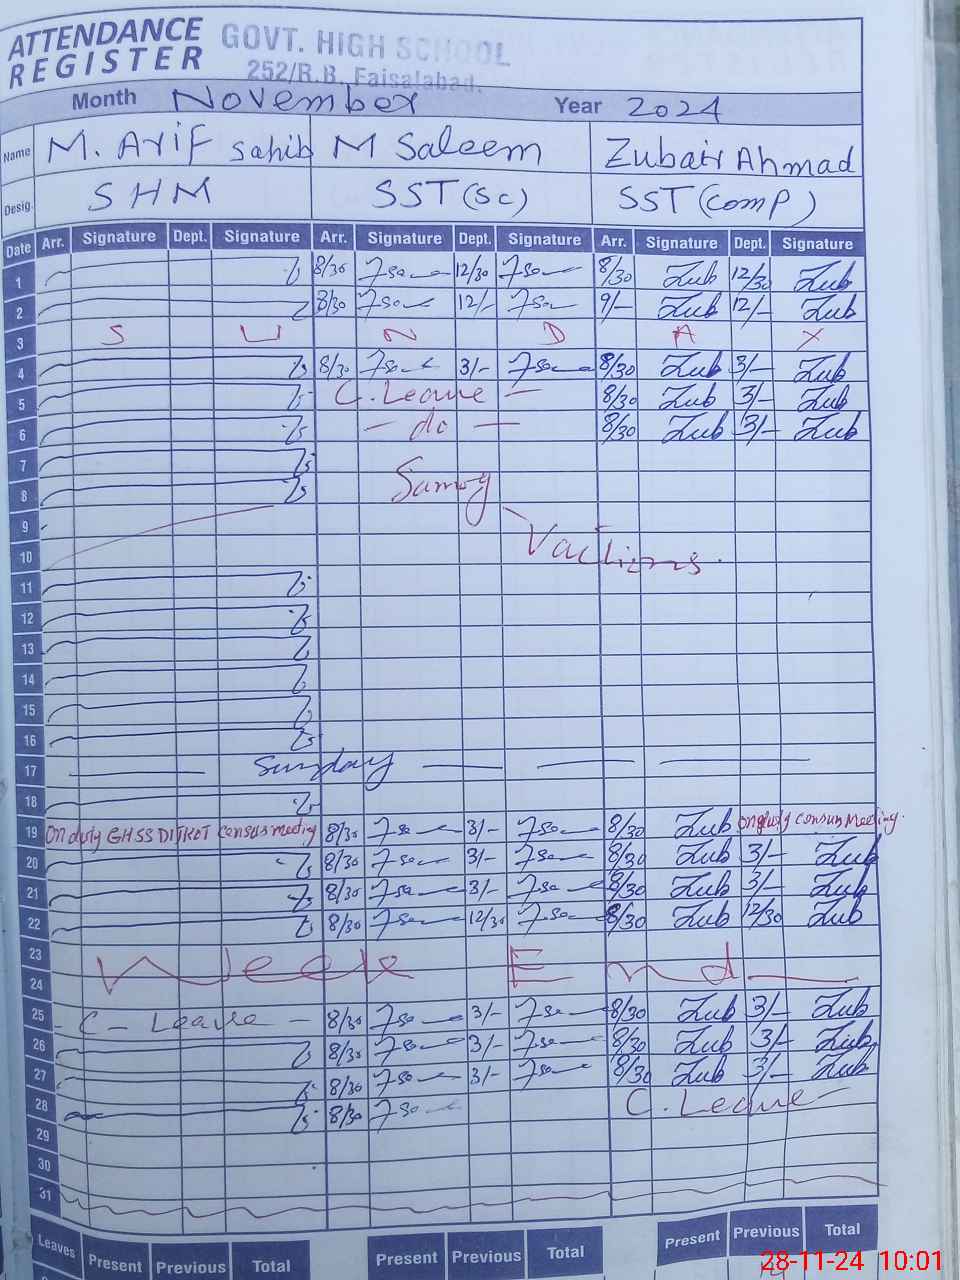 ATTENDANCE REGISTER GOVT. HIGH SCHOOL
252/R.B. Faisalabad.
Month November Year 2024
Name M. Arif Sahib M Saleem Zubair Ahmad
Desig. SHM SST(Sc) SST(comp)
Date Arr. Signature Dept. Signature Arr. Signature Dept. Signature Arr. Signature Dept. Signature
1 8/30 12/30 8/30 Zub 12/30 Zub
2 8/30 12/- 9/- Zub 12/- Zub
3 S U N D A Y
4 8/30 3/- 8/30 Zub 3/- Zub
5 C. Leave - 8/30 Zub 3/- Zub
6 - do - 8/30 Zub 3/- Zub
7
8 Samog
9
10 Vactions.
11
12
13
14
15
16
17 Sunday
18
19 On duty GHSS DITKOT consus meeting 8/30 3/- 8/30 Zub on duty consus Meeting.
20 8/30 3/- 8/30 Zub 3/- Zub
21 8/30 3/- 8/30 Zub 3/- Zub
22 8/30 12/30 8/30 Zub 12/30 Zub
23 Week End
24
25 - C - Leave - 8/30 3/- 8/30 Zub 3/- Zub
26 8/30 3/- 8/30 Zub 3/- Zub
27 8/30 3/- 8/30 Zub 3/- Zub
28 8/30 C. Leave
29
30
31
Leaves Present Previous Total Present Previous Total Present Previous Total
28-11-24 10:01